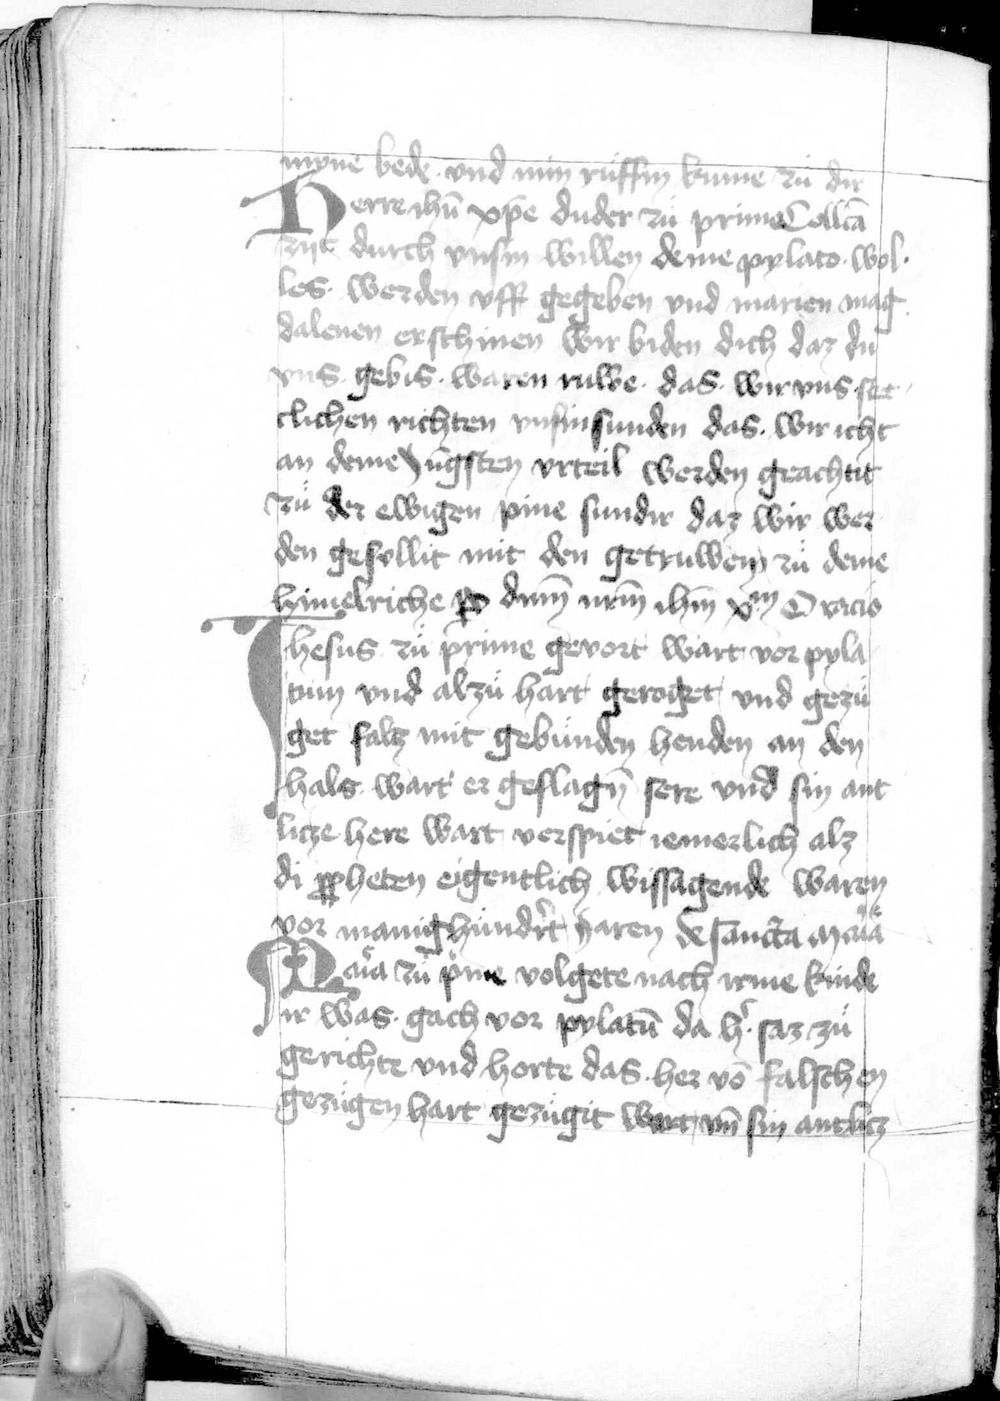 myne bede · vnd min ruͤffin kume zuͤ dir
Herre ihū xp̄e du der zuͤ prime Collcā
zijt durch vnsin willen deme pylato · wol·
les · werden vff gegeben vnd marien mag
dalenen erschinen Wir biden dich daz du
vns · gebis · waren ruwe · das · wir vns · ste
clichen richten vnsin sunden das · wir icht
an deme Jūgsten vrteil werden geachtit
zuͤ der ewigen pine sundir daz wir wer
den gesellit mit den getruwen zuͤ deme
hymelriche p dnm̄ nrm̄ ihm̄ xm̄ Oracio
Ihesus zuͤ prime gevort wart vor pyla
tum vnd alzuͤ hart geroget vnd gezuͤ
get falz mit gebunden henden an den
hals · wart er geslagn̄ sere vnd sin ant
litze here wart verspiet iemerlich alz
di ppheten eigentlich wissagende waren
vor manighundert Jaren de sancta maͥa
Maͥa zuͤ pͥme volgete nach irme kinde
ir was · gach vor pylatū da hͤ · saz zuͤ
gerichte vnd horte das · her vō falschen
gezugen hart gezugit wart vn̄ sin antlitz